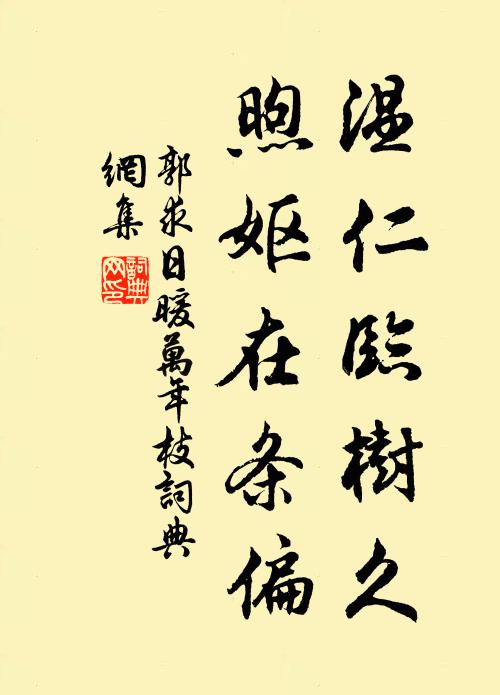 温仁臨樹久
煦妪在条偏
郭求日暖萬年枝詞典
網集
詞典網印